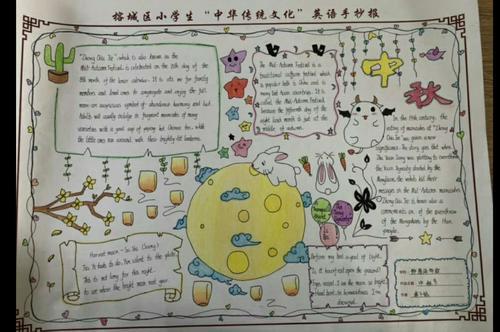 榕城区小学生“中华传统文化”英语手抄报
"Zhong Qiu Jie", which is also known as the
Mid-Autumn Festival, is celebrated on the 15th day of the
8th month of the lunar calendar. It is a time for family
members and loved ones to congregate and enjoy the full
moon - an auspicious symbol of abundance, harmony and luck.
Adults will usually indulge in fragrant mooncakes of many
varieties with a good cup of piping hot Chinese tea, while
the little ones run around with their brightly-lit lanterns.
The Mid-Autumn Festival is a
traditional cultural festival which
is popular both in China and in
many East Asian countries. It is
called the Mid-Autumn Festival
because the fifteenth day of the
eighth lunar month is just at the
middle of autumn.
中秋
In the 14th century, the
eating of mooncakes at "Zhong
Qiu Jie" was given a new
significance. The story goes that when
Zhu Yuan Zhang was plotting to overthrow
the Yuan Dynasty started by the
Mongolians, the rebels hid their
messages in the Mid-Autumn mooncakes.
Zhong Qiu Jie is hence also a
commemoration of the overthrow
of the Mongolians by the Han
people.
Harvest moon - Su Shi (Song)
This is not long for this night,
to see where the bright moon next year
Before my bed a pool of light,
Is it hoarfrost upon the ground?
Eyes raised, I see the moon so bright
Head bent, in homesickness I'm
drowned.